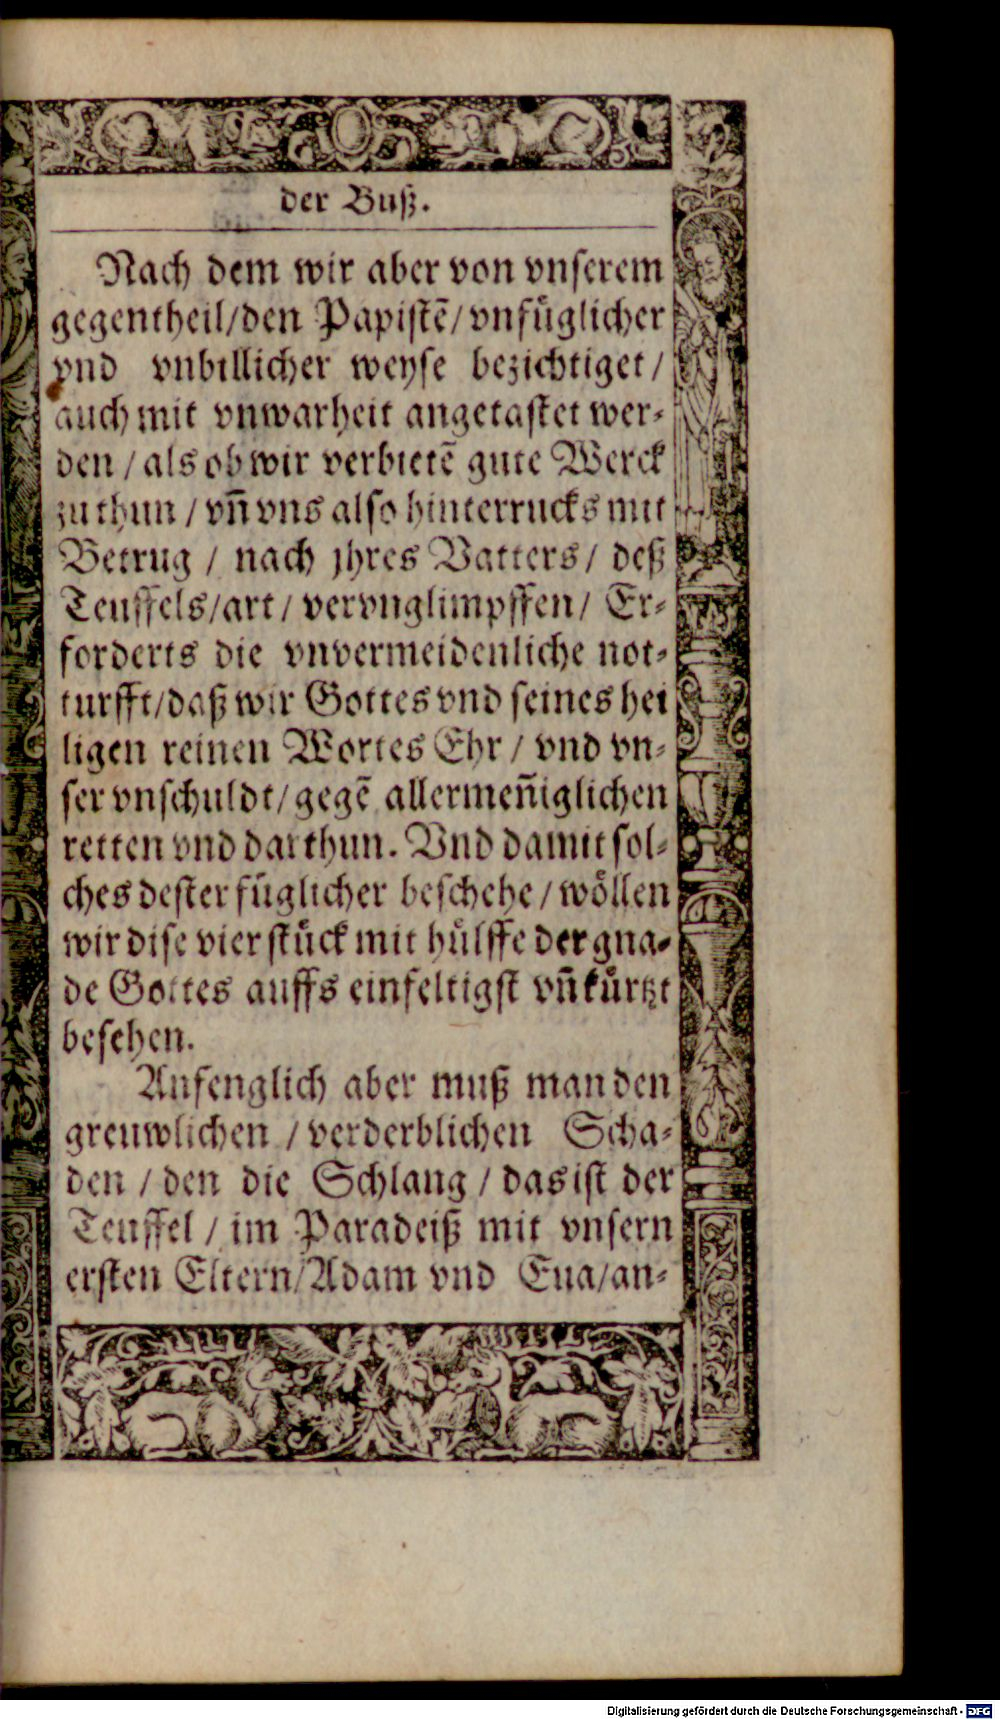 der Buß.
Nach dem wir aber von vnserem
gegentheil/den Papistẽ/vnfuͤglicher
vnd vnbillicher weyse bezichtiget/
auch mit vnwarheit angetastet wer-
den / als ob wir verbietẽ gute Werck
zu thun / vñ vns also hinterrucks mit
Betrug / nach jhres Vatters / deß
Teuffels/art / vervnglimpffen/ Er-
forderts die vnvermeidenliche not-
turfft/daß wir Gottes vnd seines hei
ligen reinen Wortes Ehr / vnd vn-
ser vnschuldt/gegẽ allermeñiglichen
retten vnd darthun. Vnd damit sol-
ches dester fuͤglicher beschehe / woͤllen
wir dise vier stuͤck mit huͤlffe der gna-
de Gottes auffs einfeltigst vñ kuͤrtzt
besehen.
Anfenglich aber muß man den
greuwlichen / verderblichen Scha-
den / den die Schlang / das ist der
Teuffel / im Paradeiß mit vnsern
ersten Eltern/Adam vnd Eua/an-
Digitalisierung gefördert durch die Deutsche Forschungsgemeinschaft - DFG